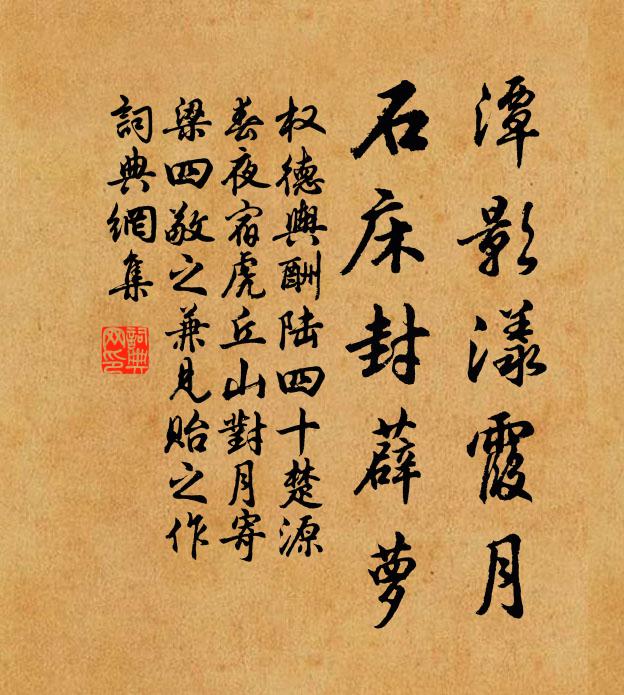 潭影漾霞月
石床封薜萝
权德舆酬陆四十楚源
春夜宿虎丘山對月寄
梁四敬之兼見貽之作
詞典網集
詞典网印